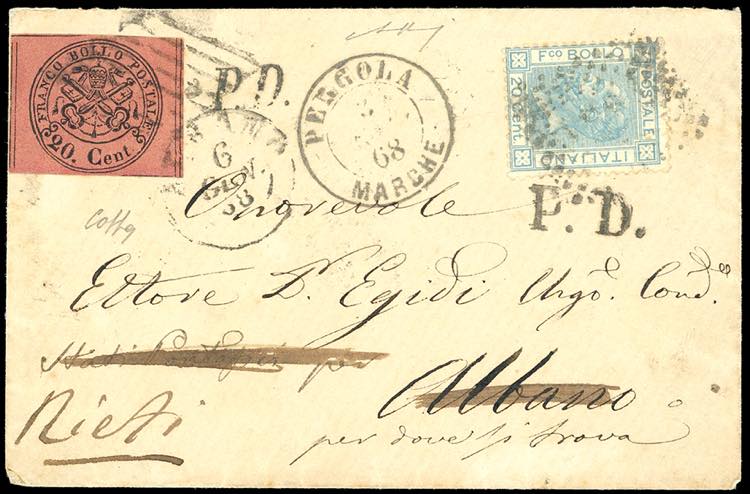 FRANCO BOLLO POSTALE
20. Cent.
P.D.
6
GIU.
68
PERGOLA
68
MARCHE
Fco BOLLO
POSTALE
ITALIANO
20 Cent.
P. D.
Onorevole
Ettore D'Egidi
Stati Pontifici per
Albano
Rieti
per dove si trova